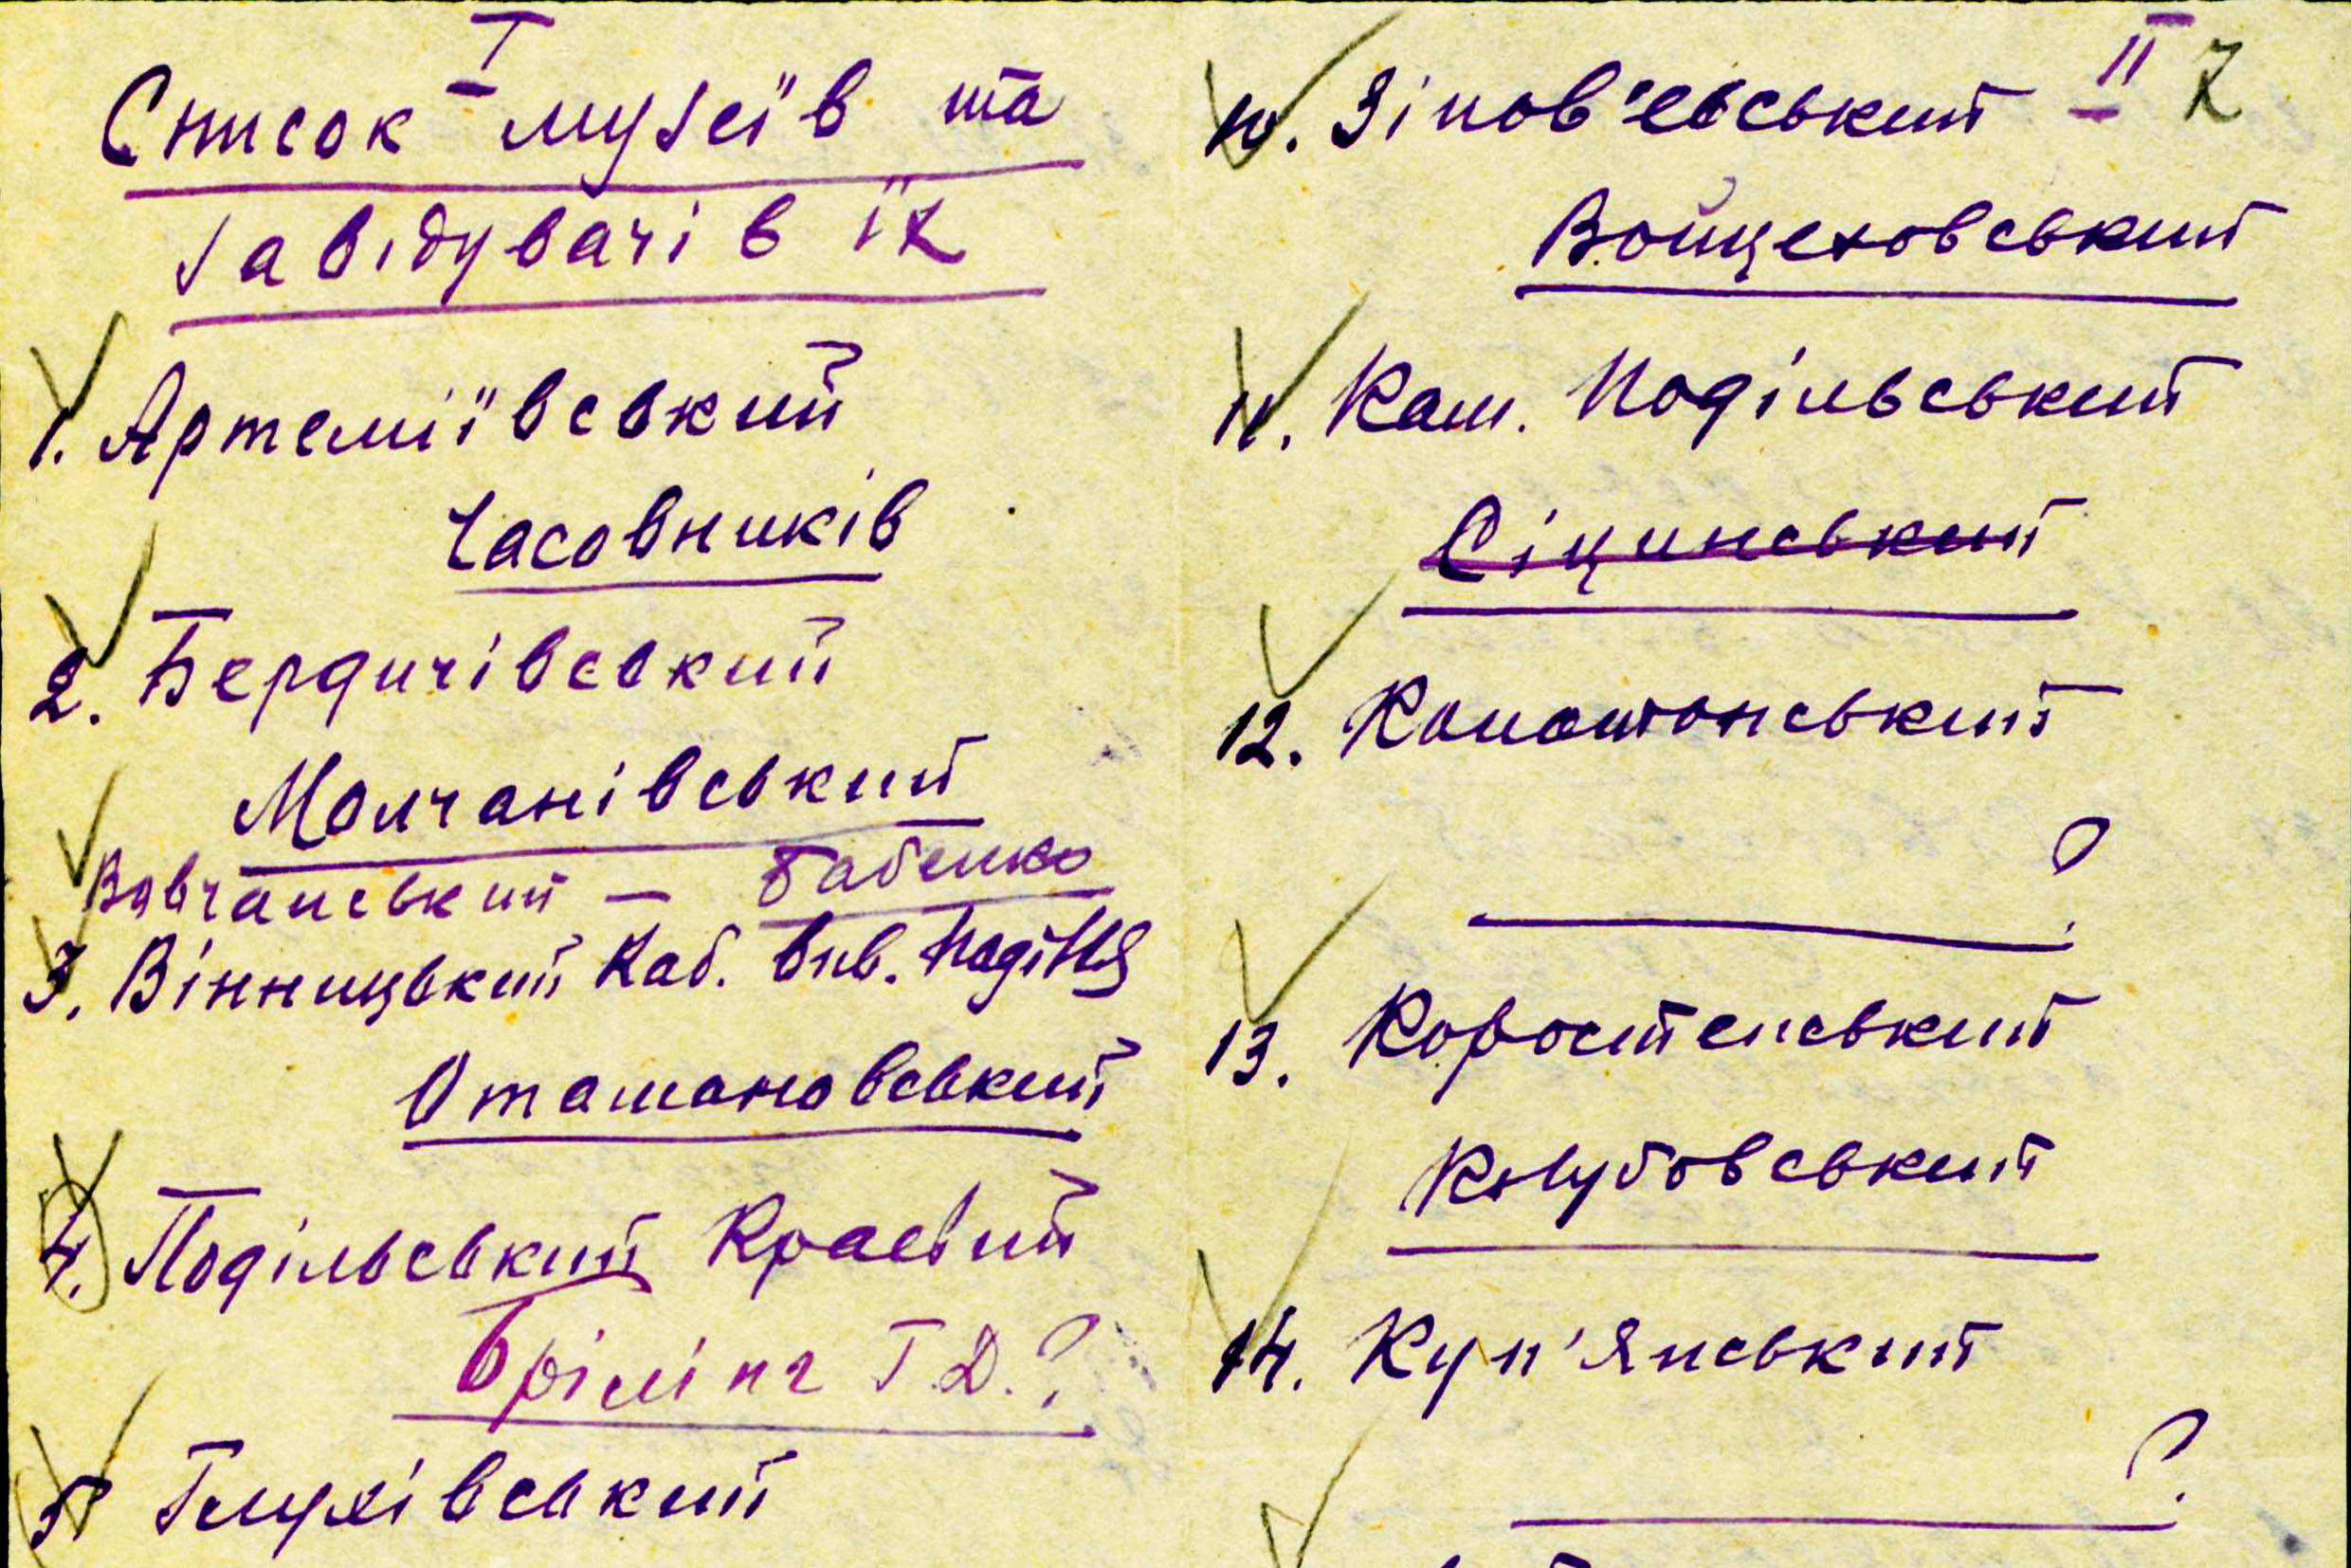 I
Список музеїв та
завідувачів їх
1. Артеміївський
Часовників
2. Бердичівський
Молчанівський
Вовчанський — Бабенко
3. Вінницький Каб. вив. Поділля
Отамановський
4. Подільський Краєвий
Брілінг Г.Д.?
5 Глухівський
II
10. Зінов'євський
Войцеховський
11. Кам. Подільський
Сіцинський
12. Конотопський
?
13. Коростенський
Клубовський
14. Куп'янський
?